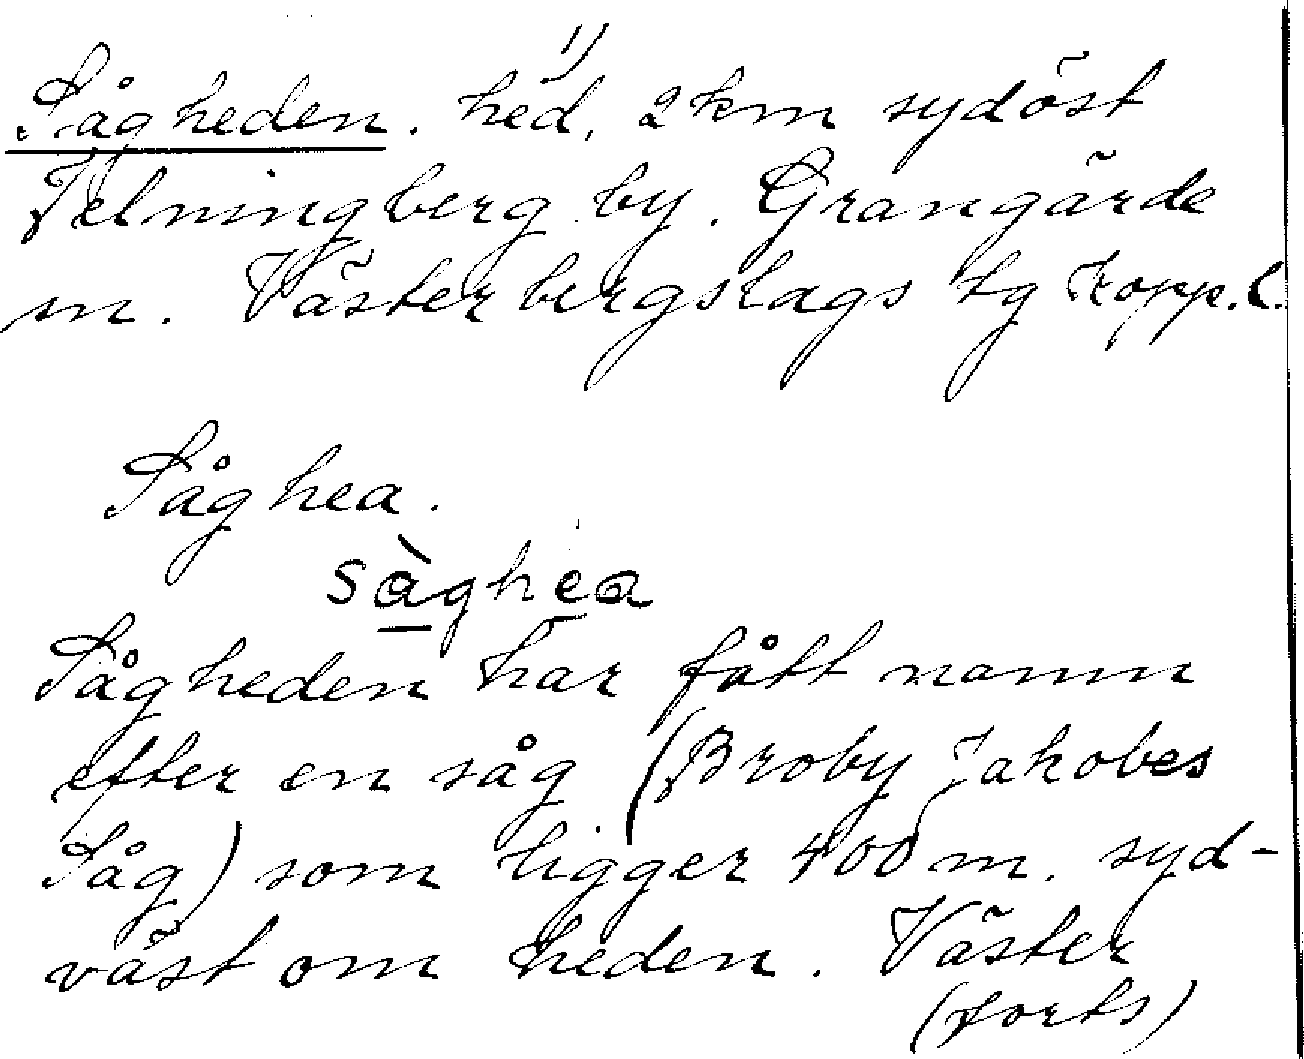 1)
Sågheden. hed, 2 km sydöst
Felningberg by. Grangärde
m. Västerbergslags tg Kopp.l.
Såghea.
sàghea
Sågheden har fått namn
efter en såg (Broby Jakobes
Såg) som ligger 400 m. syd-
väst om heden. Väster
(forts)